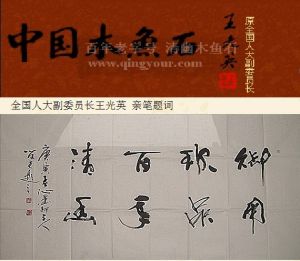 中国木鱼石
王光英
原全国人大副委员长
百年老字号 清幽木鱼石
www.qingyour.com
全国人大副委员长王光英 亲笔题词
御用
珍品
百年
清幽